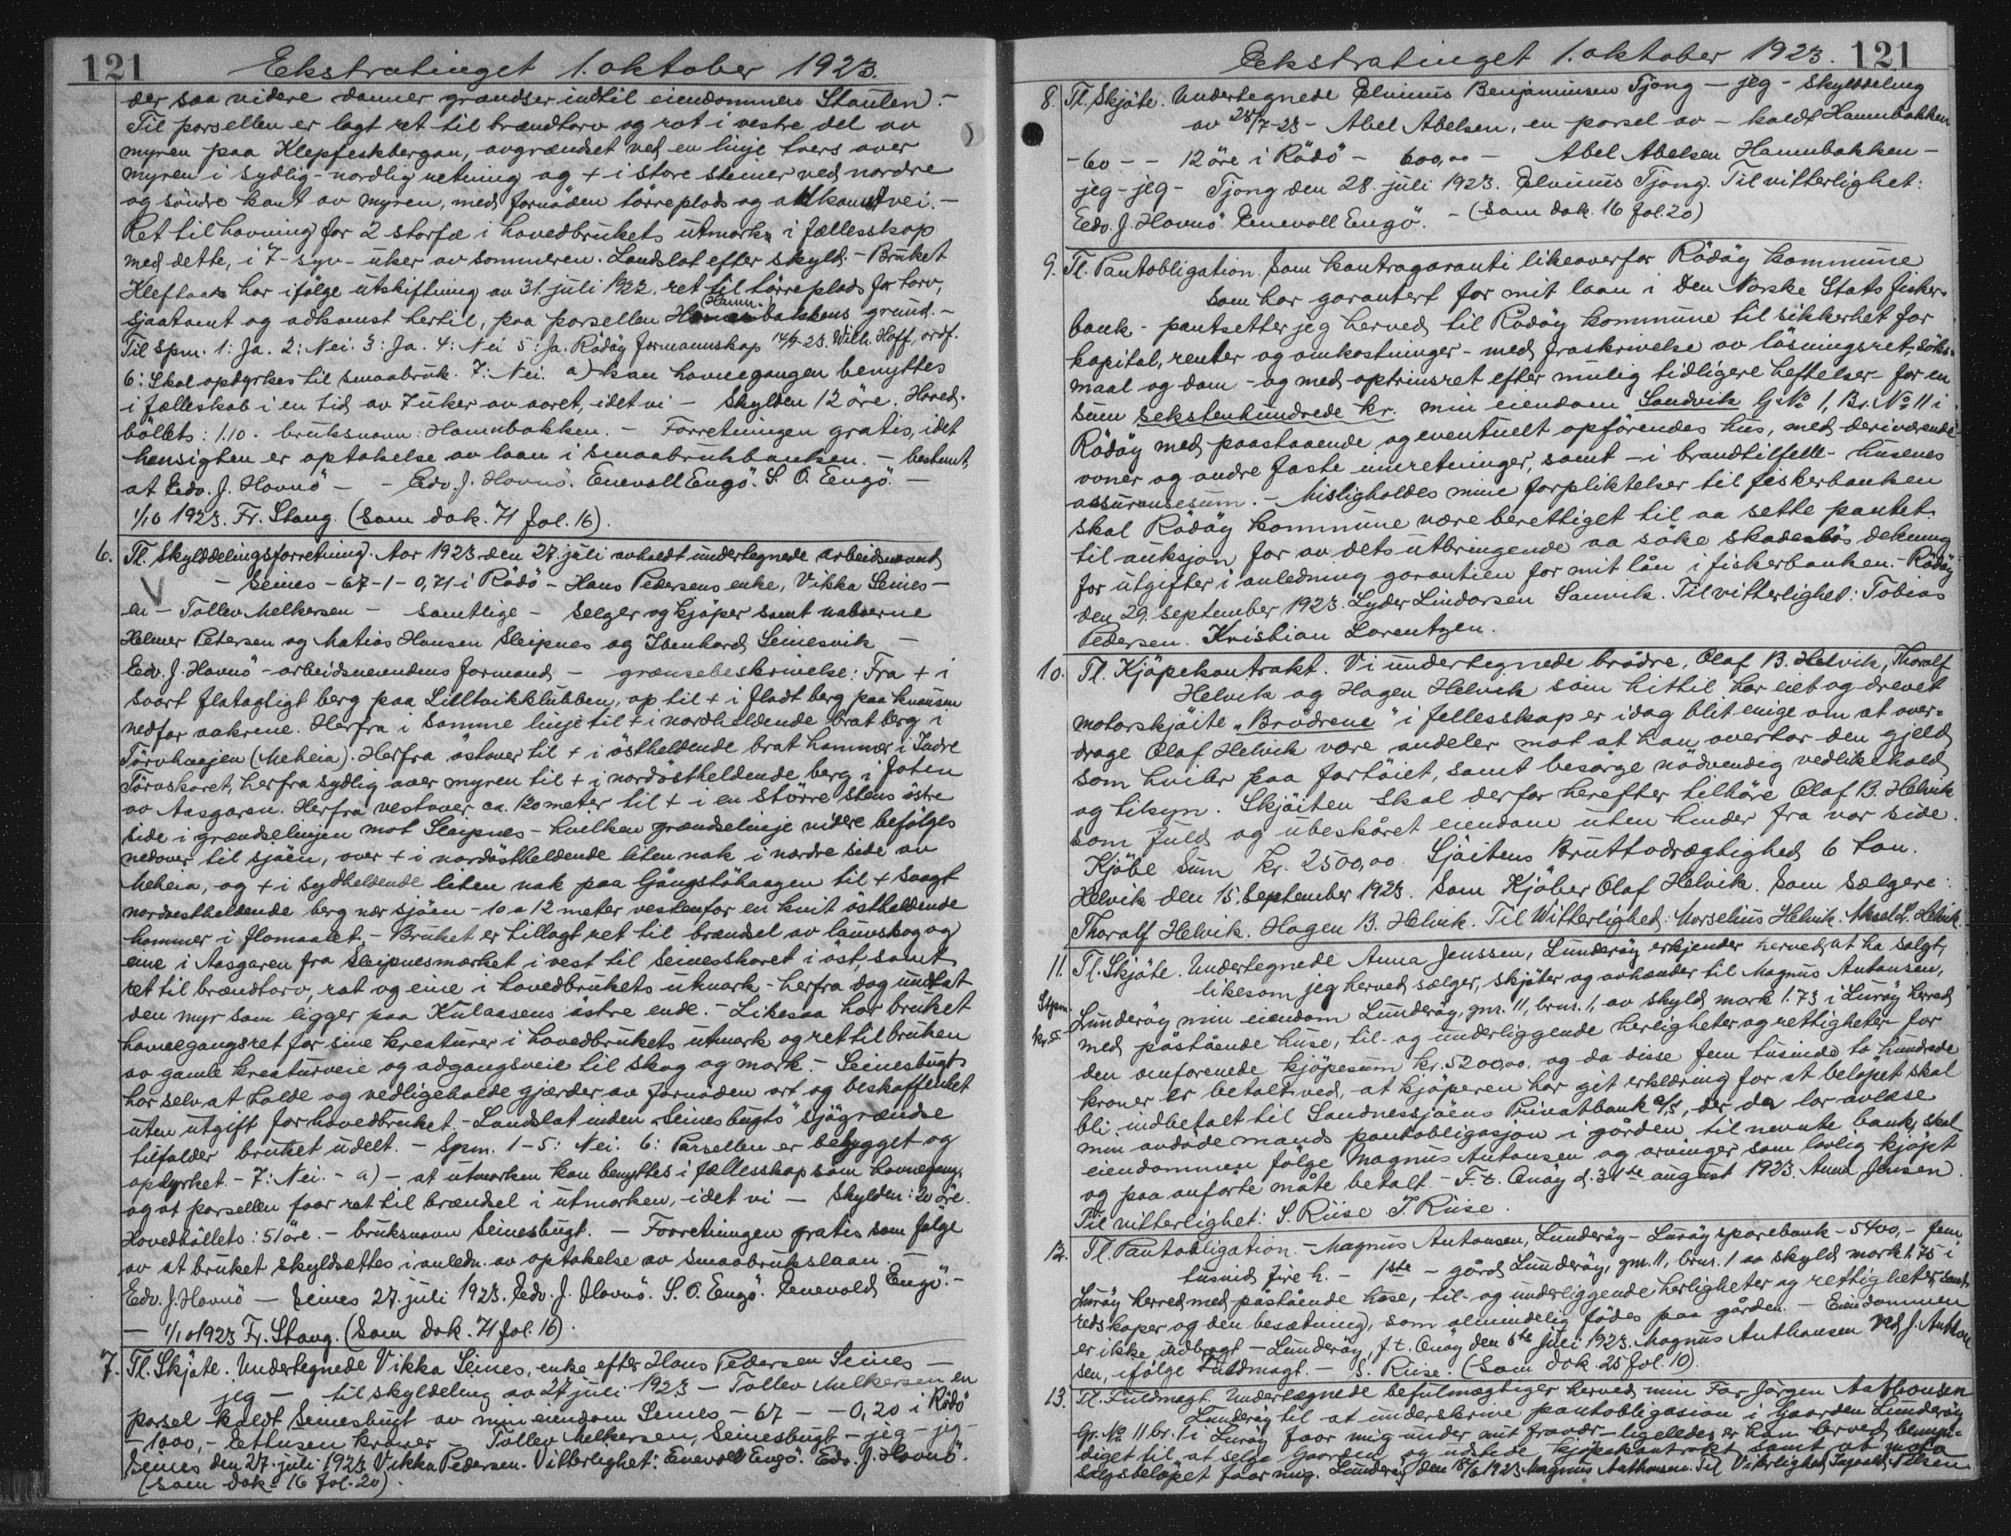 121
Ekstratinget 1. oktober 1923.
der saa videre danner grændser indtil eiendommen Staulen). -
Til parsellen er lagt ret til brændtorv og rot i vestre del av
myren paa Klepfeskbergan, avgrændset ved en linje tvers over
myren i sydlig-nordlig retning og + i store steiner ved nordre
og söndre kant av myren, med fornöden törreplads og atkomstvei. -
Ret til havning for 2 storfæ i hovedbrukets utmark i fællesskap
med dette, i 7 - syv - uker av sommeren. Landslot efter skyld. - Bruket
Kleftaas har ifölge utskiftning av 31. juli 1922 ret til törreplads for torv,
sjaatomt og adkomst hertil, paa parsellen Hamnbakkens grund. -
Til Spm. 1: Ja. 2: Nei. 3: Ja. 4: Nei 5: Ja. Rödöy formannskap 14/7 23. Wilh. Hoff, ordf.
6: Skal opdyrkes til smaabruk. 7: Nei. a) kan havnegangen benyttes
i fælleskab i en tid av 7 uker av aaret, idet vi - Skylden 12 öre. Hoved-
böllets: 1.10. bruksnavn: Hamnbakken. - Forretningen gratis, idet
hensigten er optakelse av laan i smaabrukbanken. - bestemt,
at Edv. J. Hovnö - - Edv. J. Hovnö. Enevoll Engö. S. O. Engö. -
1/10 1923. Fr. Stang. (Som dok. 71 fol. 16).
6. Tl. Skylddelingsforretning. Aar 1923 den 27. juli avholdt undertegnede arbeidsnevnd
- Seines - 67 - 1 - 0,71 i Rödö - Hans Pedersens enke, Vikka Seines -
en - Tollev Melkersen - samtlige - selger og kjöper samt naboerne
Helmer Petersen og Matias Hansen Sleipnes og Ibenhard Seinesvik -
Edv. J. Hovnö - arbeidsnevndens formand - grænsebeskrivelse: Fra + i
svart flatagtigt berg paa Lilltvikklubben, op til + i fladt berg paa knausen
nedfor aakrene. Herfra i samme linje til + i nordheldende brat berg i
Törvhaajen (Meheia). Herfra östover til + i östheldende brat hammer i Indre
Törvskaret, herfra sydlig over myren til + i nordöstheldende berg i foten
av Aasgaren. Herfra vestover ca. 120 meter til + i en större stens östre
side i grændselinjen mot Sleipnes - hvilken grændselinje videre befölges
nedover til sjöen, over + i nordöstheldende liten nak i nordre side av
Meheia, og + i sydheldende liten nak paa Gångstöhaagen til + svagt
nordvestheldende berg nær sjöen - 10 a 12 meter vestenfor en hvit ostheldende
hammer i flomaalet. - Bruket er tillagt ret til brændsel av lauvskog og
eine i Aasgaren fra Sleipnesmærket i vest til Seinesskaret i öst, samt
ret til brændtorv, rot og eine i hovedbrukets utmark - herfra dog undtat
den myr som ligger paa Kulaasens östre ende. - Likesaa har bruket
havnegangsret for sine kreaturer i hovedbrukets utmark og ret til bruken
av gamle kreaturveie og adgangsveie til skog og mark. - Seinesbugt
har selv at holde og vedligeholde gjærder av fornöden art og beskaffenhet
uten utgift for hovedbruket. - Landslot inden "Seinesbugts" sjögrændse
tilfalder bruket udelt. - Spm. 1 - 5: Nei. 6: Parsellen er bebygget og
opdyrket. - 7: Nei. - a) - at utmarken kan benyttes i fællesskap som havnegang,
og at parsellen faar ret til brændsel i utmarken, idet vi - Skylden: 20 öre.
Hovedböllets: 51 öre. - bruksnavn Seinesbugt. - Forretningen gratis som fölge
av at bruket skyldsættes i anledn. av optakelse av smaabrukslaan -
Edv. J. Hovnö - Seines 27. juli 1923. Edv. J. Hovnö. S. O. Engö. Enevold Engö. -
- 1/10 1923 Fr. Stang. (Som dok. 71 fol. 16).
7. Tl. Skjöte. Undertegnede Vikka Seines, enke efter Hans Pedersen Seines -
jeg - til skyldeling av 27 juli 1923 - Tollev Melkersen en
parsel kaldt Seinesbugt av min eiendom Seines - 67 - - 0,20 i Rödö
- 1000,- Ettusen kroner - Tollev Melkersen, Seinesbugt - jeg - jeg -
Seines den 27. juli 1923 Vikka Pedersen. Vitterlighet: Enevold Engö. Edv. J. Hovnö.
(Som dok. 16 fol. 20).
Ekstratinget 1. oktober 1923. 121
8. Tl. Skjöte. Undertegnede Elvinus Benjaminsen Tjong - jeg - skylddeling
av 28/7-23 - Abel Abelsen, en parsel av - kaldt Hamnbakken
- 60 - - 12 öre i Rödö - 600,00 - Abel Abelsen Hamnbakken -
jeg - jeg - Tjong den 28. juli 1923. Elvinus Tjong. Til vitterlighet:
Edv. J. Hovnö. Enevoll Engö. - (Som dok. 16 fol. 20)
9. Tl. Pantobligation. Som kontragaranti likeoverfor Rödöy kommune
som har garantert for mit laan i Den Norske Stats fisker-
bank - pantsetter jeg herved til Rödöy kommune til sikkerhet for
kapital, renter og omkostninger - med fraskrivelse av lösningsret, söks-
maal og dom - og med optrinsret efter mulig tidligere heftelser - for en
sum sekstenhundrede kr. min eiendom Sandvik G. No 1, Br. No 11 i
Rödöy med paastaaende og eventuelt opförendes hus, med deriværende
ovner og andre faste innretninger, samt - i brandtilfelle - husenes
assuransesum. - Misligholdes mine forpliktelser til fiskerbanken
skal Rödöy kommune være berettiget til aa sette pantet
til auksjon for av dets utbringende aa söke skadeslös dekning
for utgifter i anledning garantien for mit lån i fiskerbanken. - Rödöy
den 29. september 1923. Lyder Lindorsen Sanvik. Til vitterlighet: Tobias
Pedersen. Kristian Lorentzen.
10. Tl. Kjöpekontrakt. Vi undertegnede brödre, Olaf B. Helvik, Thoralf
Helvik og Hagen Helvik som hittil har eiet og drevet
motorskjöite "Brödrene" i fellesskap er idag blit enige om at over-
drage Olaf Helvik vore andeler mot at han overtar den gjeld
som hviler paa fartöiet, samt besörge nödvendig vedlikehold
og tilsyn. Skjöiten skal derfor herefter tilhöre Olaf B. Helvik
som fuld og ubeskåret eiendom uten hinder fra vor side.
Kjöbe Sum Kr. 2500,00. Sjöitens Bruttodrægtighed 6 ton.
Helvik den 15. September 1923. Som Kjöber Olaf Helvik. Som sælgere:
Thoralf Helvik. Hagen B. Helvik. Til Witterlighed: Morselius Helvik. Aksel L. Helvik.
11. Tl. Skjöte. Undertegnede Anna Jenssen, Lunderöy erkjender herved at ha solgt,
likesom jeg herved sælger, skjöter og avhænder til Magnus Antonsen,
Stpm. kr. 5.
Lunderöy min eiendom Lunderöy, gnr. 11, brnr. 1, av skyld mark 1.73 i Luröy herred
med påstående huse, til- og underliggende herligheter og rettigheter for
den omforenede kjöpesum kr. 5200,00, og da disse fem tusinde to hundrede
kroner er betalt ved, at kjöperen har git erklæring for at belöpet skal
bli indbetalt til Sandnessjöens Privatbank A/S, der da lar avlæse
min avdöde mands pantobligasjon i gården til nevnte bank, skal
eiendommen fölge Magnus Antonsen og arvinger som lovlig kjöpt
og paa anförte måte betalt. - F. t. Onöy d. 31te august 1923. Anna Jensen.
Til vitterlighet: S. Riise J. Riise.
12. Tl. Pantobligation. - Magnus Antonsen, Lunderöy - Luröy sparebank - 5400,- fem
tusind fire h. - 1ste - gård Lunderöy, gnr. 11, brnr. 1 av skyld mark 1.75 i
Luröy herred med påstående huse, til- og underliggende herligheter og rettigheter samt
redskaper og den besætning, som almindelig födes paa gården. - Eiendommen
er ikke udbragt - Lunderöy, f. t. Onöy den 6te juli 1923. Magnus Anthonsen ved J. Anthon
sen, ifölge Fuldmagt. - S. Riise. (Som Dok. 25 fol. 10).
13. Tl. Fuldmagt. Undertegnede befulmægtiger herved min Far Jörgen Anthonsen
Lunderöy til at underskrive pantobligasion i Gaarden Lunderöy
Gr. No 11 br. 1 i Luröy faar mig under mit fravær - ligelledes er han herved bemyn-
diget til at selge Gaarden og udstede kjöpekontrakt samt at mota
salgsbelöpet faar mig. Lunderöy den 18/6 1923 Magnus Anthonsen. Til Viterlighed Nilsen